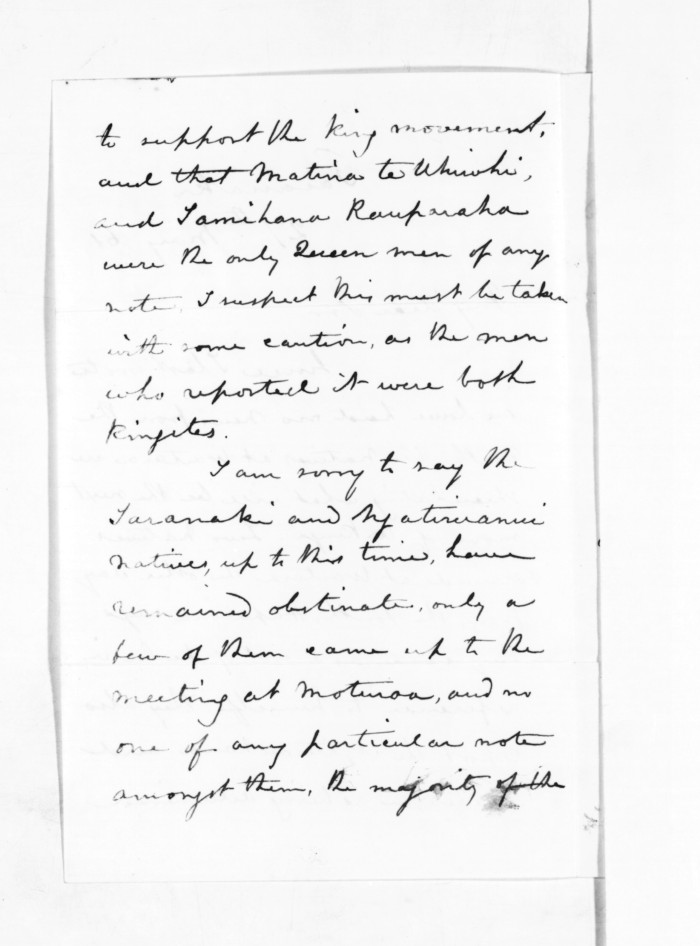 to support the king movement,
and that Matina te Whiwhi,
and Tamihana Rauparaha
were the only Queen men of any
note. I suspect this must be taken
with some caution, as the men
who reported it were both
kingites.
I am sorry to say the
Taranaki and Ngatiruanui
natives, up to this time, have
remained obstinate, only a
few of them came up to the
meeting at Moturoa, and no
one of any particular note
amongst them, the majority of the